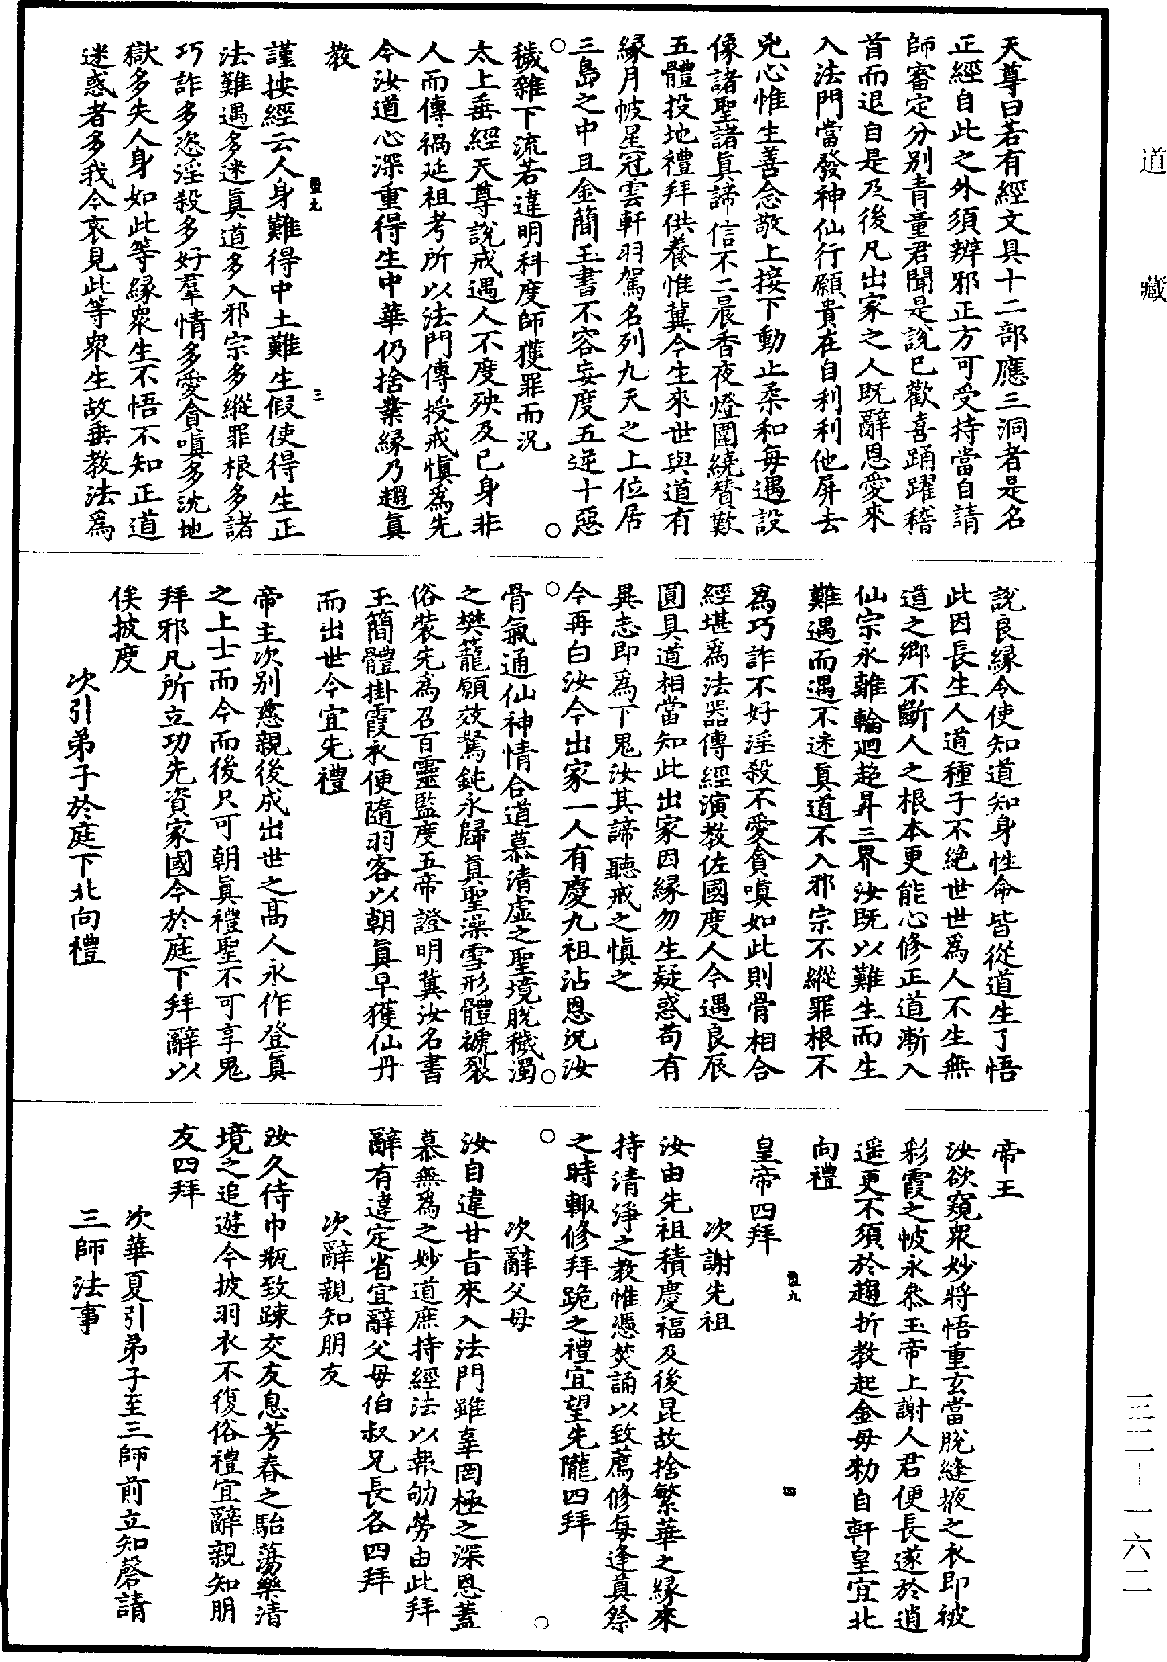 天尊曰若有經文具十二部應三洞者是名
正經自此之外須辨邪正方可受持當自請
師審定分別青童君聞是說已歡喜踊躍稽
首而退自是及後凡出家之人既辭恩愛來
入法門當發神仙行願貴在自利利他屏去
兇心惟生善念敬上接下動止柔和每遇設
像諸聖諸真諦信不二晨香夜燈圍繞贊歎
五體投地禮拜供養惟冀今生來世與道有
緣月帔星冠雲軒羽駕名列九天之上位居
三島之中且金簡玉書不容妄度五逆十惡
穢雜下流若違明科度師獲罪而況
太上垂經天尊說戒遇人不度殃及已身非
人而傳禍延祖考所以法門傳授戒慎為先
今汝道心深重得生中華仍捨業緣乃趨真
教
謹按經云人身難得中土難生假使得生正
法難遇多迷真道多入邪宗多縱罪根多諸
巧詐多恣淫殺多好羣情多愛貪嗔多沈地
獄多失人身如此等緣眾生不悟不知正道
迷惑者多我今哀見此等眾生故垂教法為
說良緣令使知道知身性命皆從道生了悟
此因長生人道種子不絕世世為人不生無
道之鄉不斷人之根本更能心修正道漸入
仙宗永離輪迴超昇三界汝既以難生而生
難遇而遇不迷真道不入邪宗不縱罪根不
為巧詐不好淫殺不愛貪嗔如此則骨相合
經堪為法器傳經演教佐國度人今遇良辰
圓具道相當知此出家因緣勿生疑惑苟有
異志即為下鬼汝其諦聽戒之慎之
今再白汝今出家一人有慶九祖沾恩況汝
骨氣通仙神情合道慕清虛之聖境脫穢濁
之樊籠願效駑鈍永歸真聖澡雪形體褫裂
俗裝先為召百靈監度五帝證明冀汝名書
玉簡體掛霞衣便隨羽客以朝真早獲仙丹
而出世今宜先禮
帝主次別慈親後成出世之高人永作登真
之上士而今而後只可朝真禮聖不可享鬼
拜邪凡所立功先資家國今於庭下拜辭以
俟披度
次引弟子於庭下北向禮
帝王
汝欲窺眾妙將悟重玄當脫縫掖之衣即被
彩霞之帔永叅玉帝上謝人君便長遂於逍
遥更不須於趨折教起金母勑自軒皇宜北
向禮
皇帝四拜
次謝先祖
汝由先祖積慶福及後昆故捨繁華之緣來
持清淨之教惟憑焚誦以致薦修每逢真祭
之時輙修拜跪之禮宜望先隴四拜
次辭父母
汝自違甘旨來入法門雖辜罔極之深恩蓋
慕無為之妙道庶持經法以報劬勞由此拜
辭有違定省宜辭父母伯叔兄長各四拜
次辭親知朋友
汝久侍巾瓶致踈交友息芳春之駘蕩樂清
境之追遊今披羽衣不復俗禮宜辭親知朋
友四拜
次華夏引弟子至三師前立知磬請
三師法事
道藏
三二-一六二